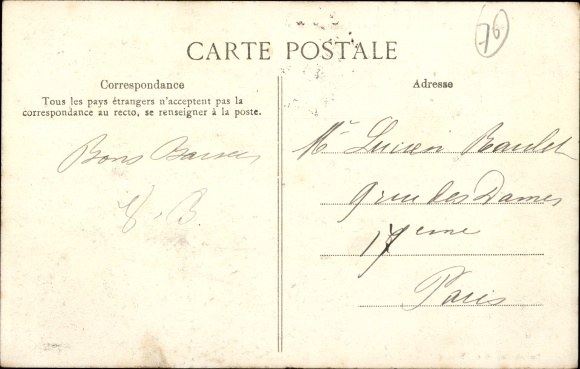 76
CARTE POSTALE
Correspondance
Tous les pays étrangers n'acceptent pas la
correspondance au recto, se renseigner à la poste.
Bons Baisers
B.
Adresse
Mr Lucien Baulet
9 rue des Dames
17eme
Paris